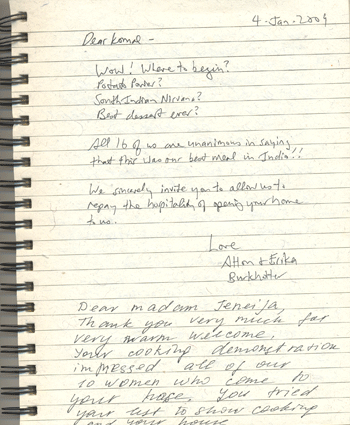 4. Jan. 2009
Dear Komal -
Wow! Where to begin?
South Indian Nirvana?
Best dessert ever?
All 16 of us are unanimous in saying
that this was our best meal in India!!
We sincerely invite you to allow us to
repay the hospitality of opening your home
to us.
Love
Alton & Erika
Burkholder
Dear madam
Thank you very much for
very warm welcome.
Your cooking demonstration
impressed all of our
10 women who come to
your You tried
your best to show cooking
and your house